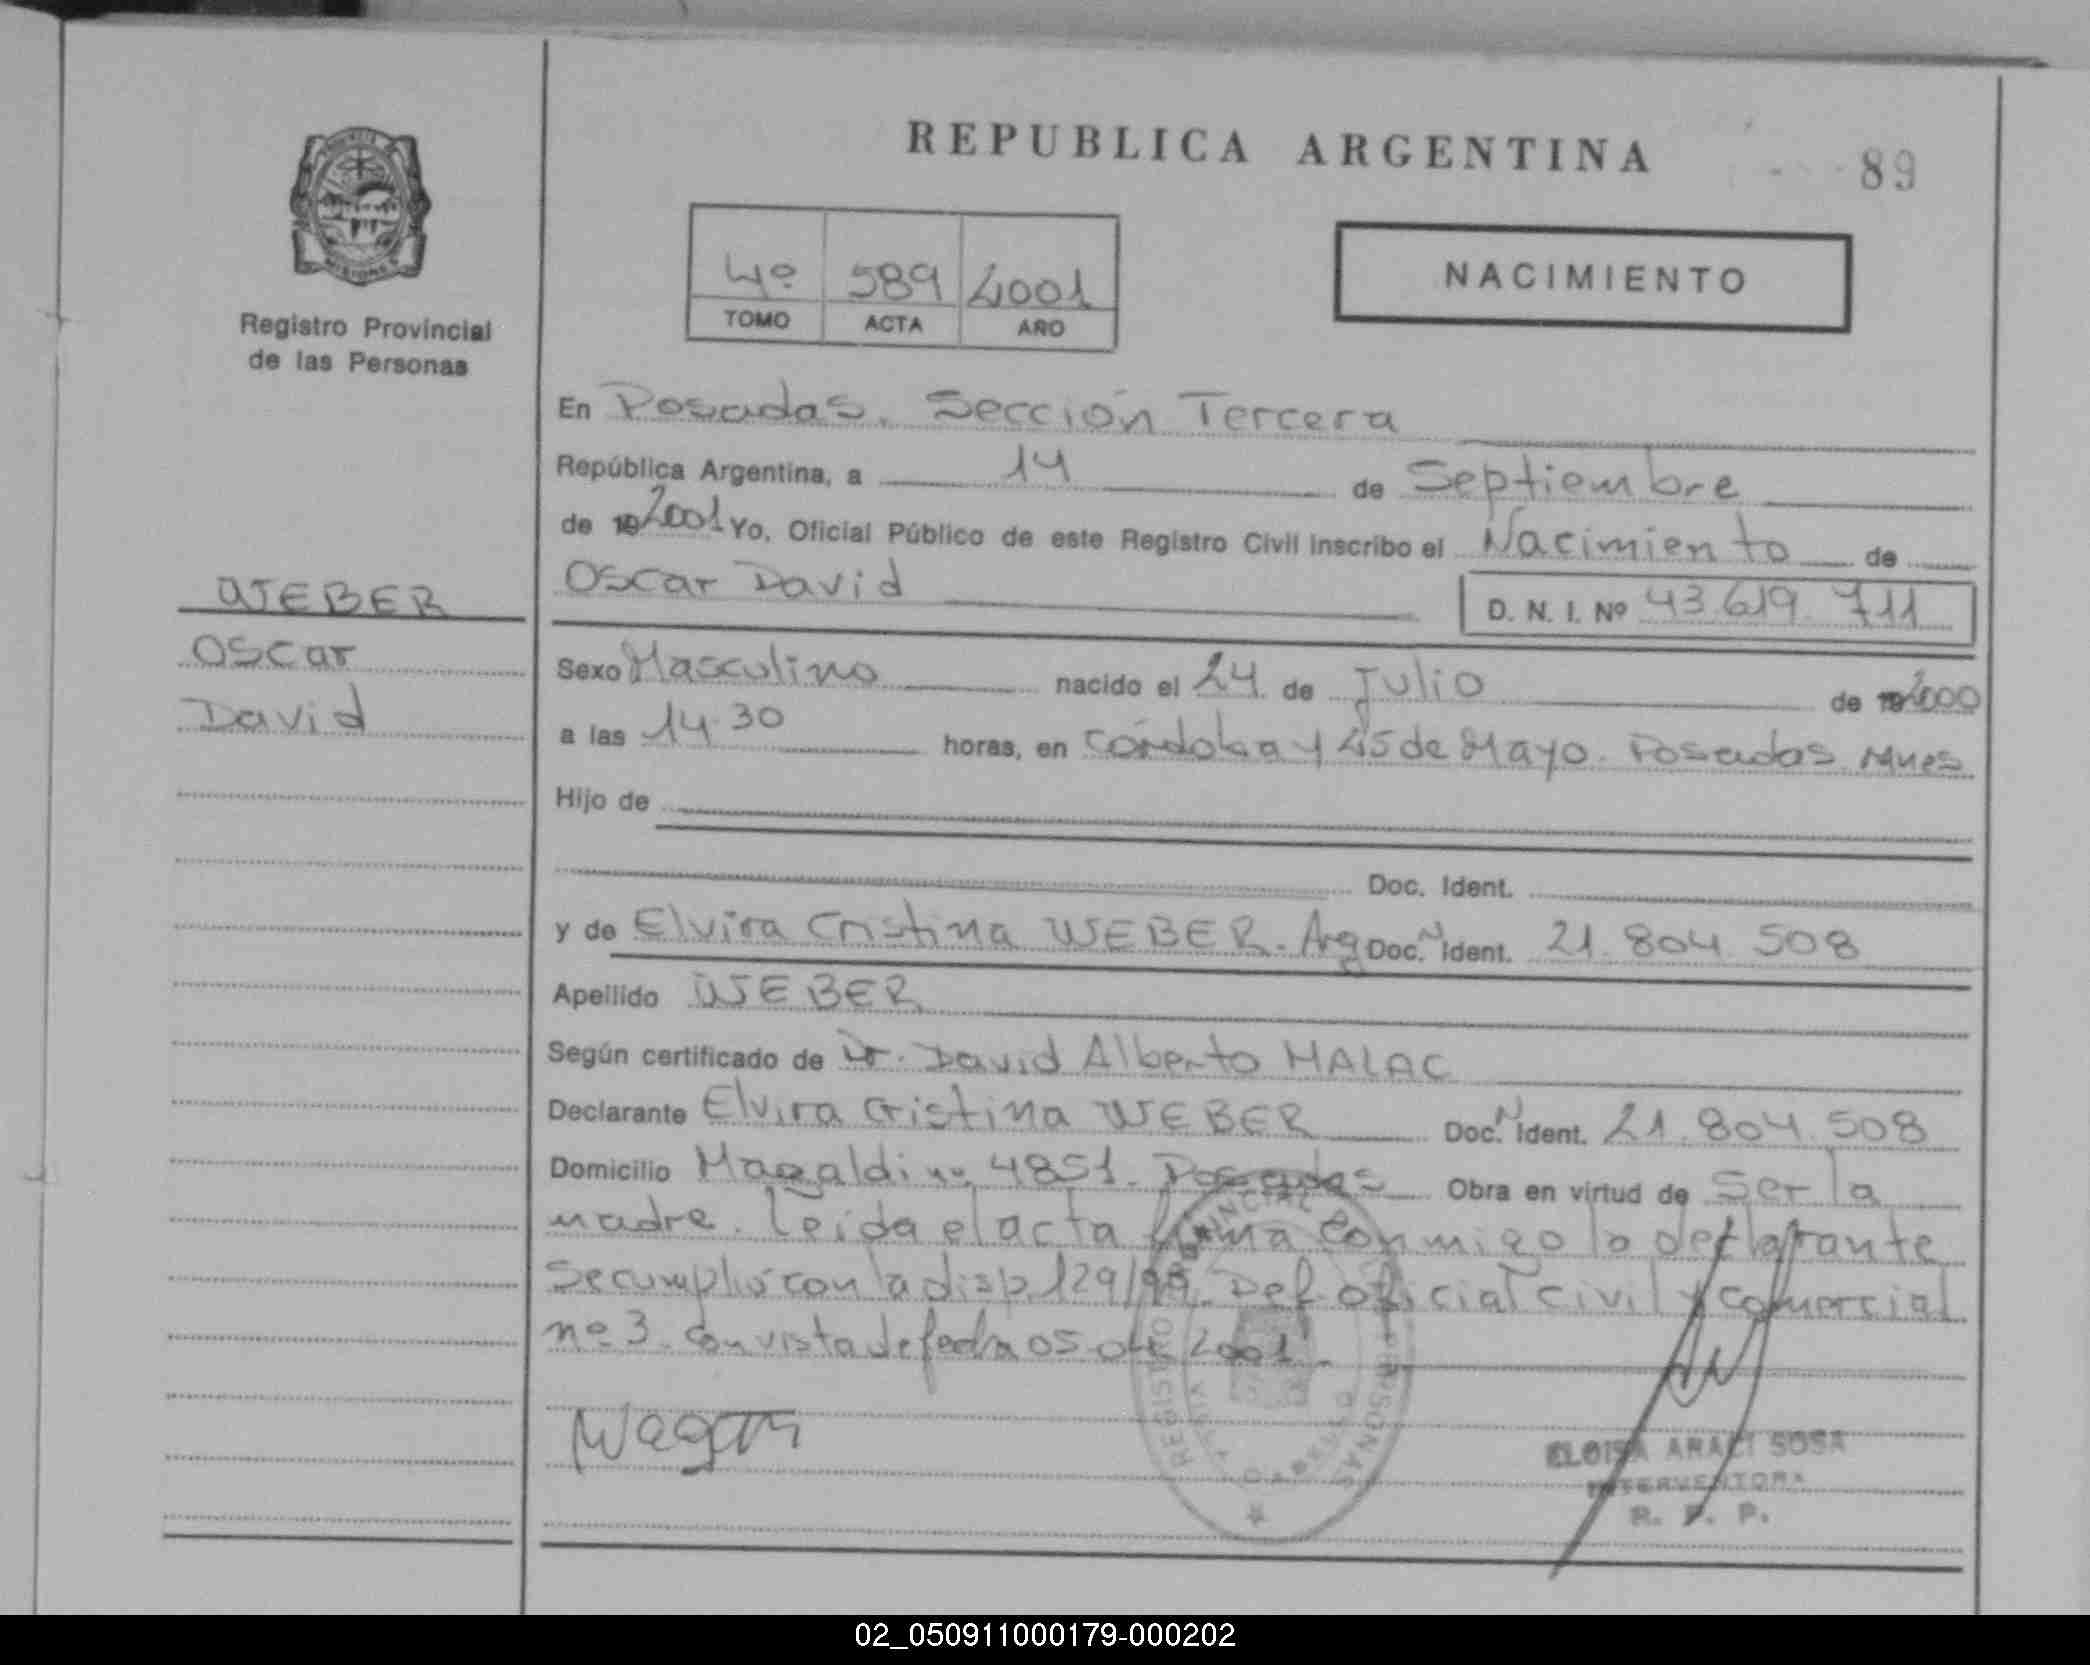 REPUBLICA ARGENTINA
89
4º 589 2001
TOMO ACTA AÑO
NACIMIENTO
MISIONES
Registro Provincial
de las Personas
En Posadas. Sección Tercera
República Argentina, a 14 de Septiembre
de 19 2001 Yo, Oficial Público de este Registro Civil inscribo el Nacimiento de
Oscar David
D. N. I. Nº 43.619.711
WEBER
Oscar
David
Sexo Masculino nacido el 24 de Julio de 19 2000
a las 14.30 horas, en Córdoba y 25 de Mayo. Posadas Mnes
Hijo de
Doc. Ident.
y de Elvira Cristina WEBER. Arg Doc. N Ident. 21.804.508
Apellido WEBER
Según certificado de Dr. David Alberto MALAC
Declarante Elvira Cristina WEBER Doc. N Ident. 21.804.508
Domicilio Magaldi nº 4851. Posadas Obra en virtud de Ser la
madre. Leida el acta firma conmigo la declarante
Se cumplió con la disp. 129/98. Def. oficial civil y comercial
nº 3. Con vista de fecha 05 04 2001.
ELOISA ARACI SOSA
INTERVENTORA
R. P. P.
02_050911000179-000202